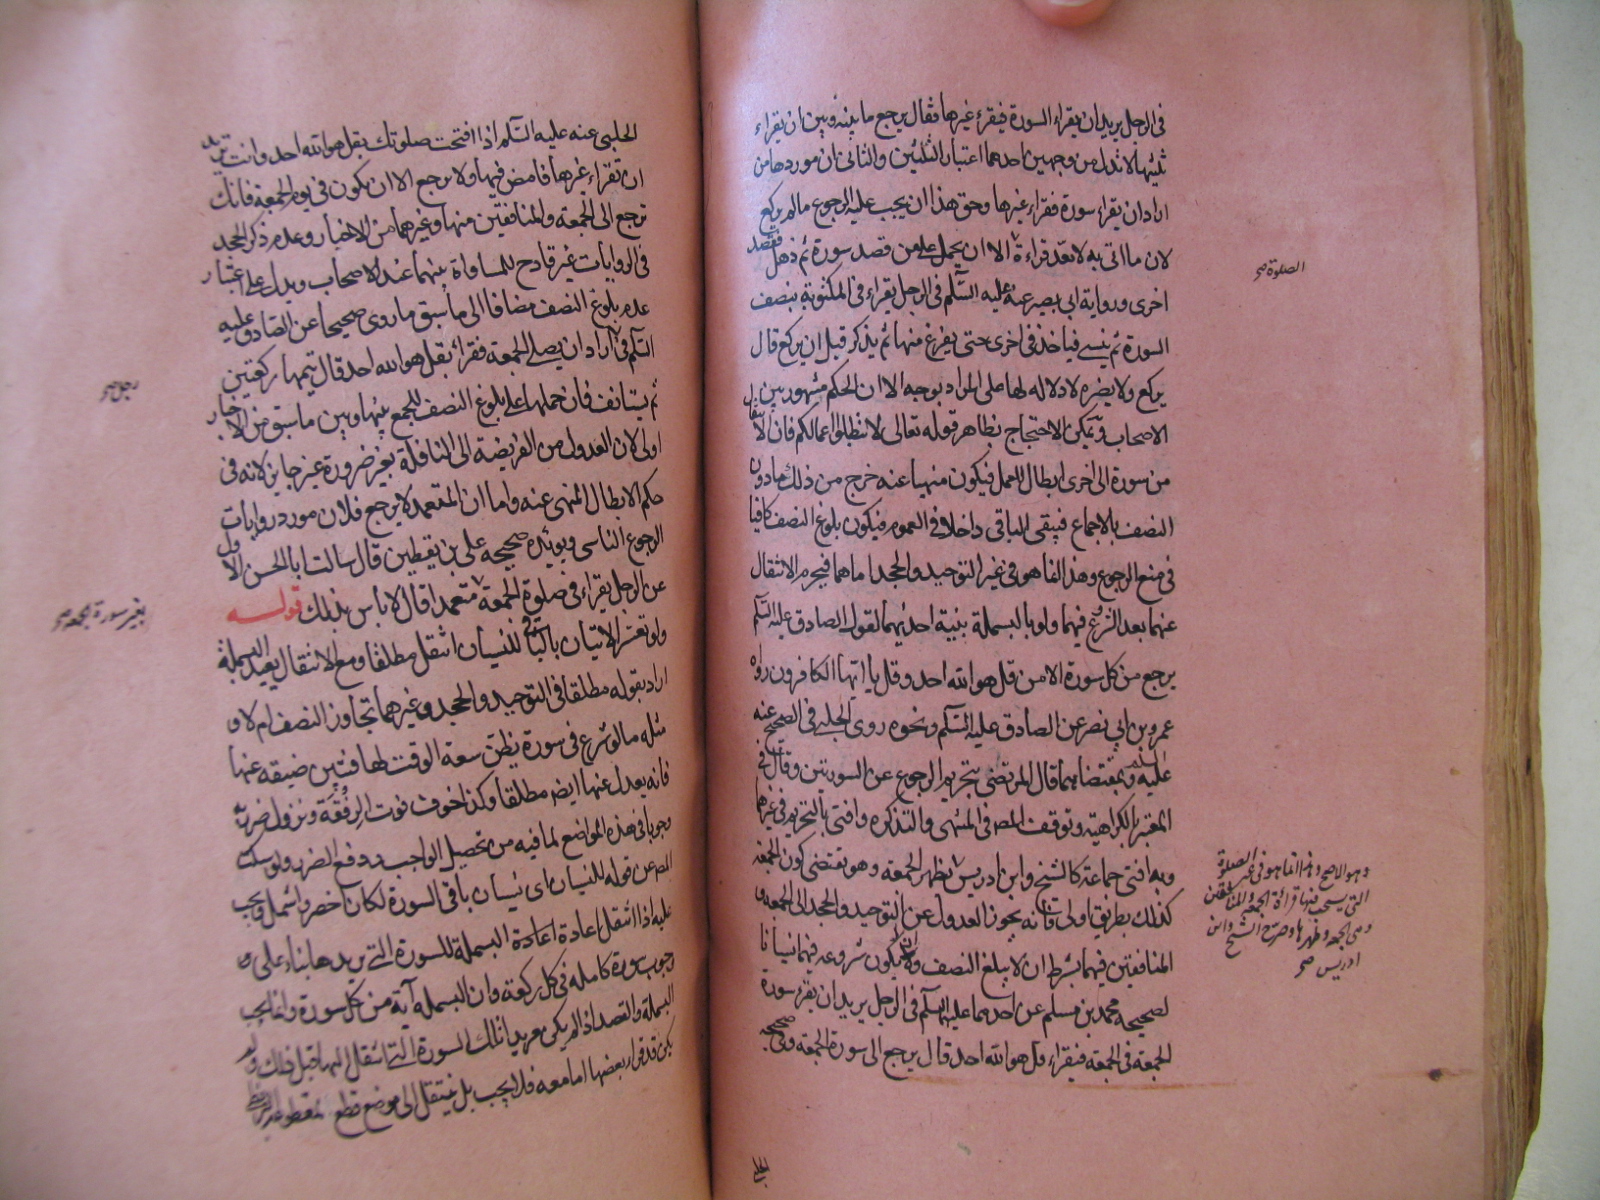 في الرجل يريد ان يقراء السورة فيقراء غيرها فقال يرجع ما بينه وبين ان يقراء
ثلثيها لا تدل من وجهين احدهما اعتبار الثلثين والثاني ان موردها من
اراد ان يقراء سورة فقراء غيرها وحق هذا ان يجب عليه الرجوع مالم يركع
لان ما اتى به لا يعد قراءة الا ان يحمل على من قصد سورة ثم ذهل فقصد
اخرى ورواية ابي بصير عنه عليه السلم في الرجل يقراء في المكتوبة بنصف
السورة ثم ينسى فياخذ في اخرى حتى يفرغ منها ثم يذكر قبل ان يركع قال
يركع ولا يضره لا دلاله لها على المراد بوجه الا ان الحكم مشهور بين
الاصحاب ويمكن الاحتجاج بظاهر قوله تعالى لا تبطلوا اعمالكم فان الانتقال
من سورة الى اخرى ابطال للعمل فيكون منهيا عنه خرج من ذلك مادون
النصف بالاجماع فيبقى الباقي داخلا في العموم فيكون بلوغ النصف كافيا
في منع الرجوع وهذا انما هو في غير التوحيد والجحد اما هما فيحرم الانتقال
عنهما بعد الشروع فيهما ولو بالبسملة بنية احديهما لقول الصادق عليه السلم
يرجع من كل سورة الا من قل هو الله احد وقل يا ايها الكافرون رواه
عمرو بن ابي نصر عن الصادق عليه السلم ونحوه روى الحلبي في الصحيح عنه
عليه السلم وبمقتضاهما قال المرتضى بتحريم الرجوع عن السورتين وقال في
المعتبر بالكراهية وتوقف المص في المنتهى والتذكره وافتى بالتحريم في غيرهما
وبه افتى جماعة كالشيخ وابن ادريس بظهر الجمعة وهو يقتضى كون الجمعة
كذلك بطريق اولى فانه يجوز العدول عن التوحيد والجحد الى الجمعة و
المنافقين فيهما بشرط ان لا يبلغ النصف وان يكون شروعه فيهما نسيانا
لصحيحة محمد بن مسلم عن احدهما عليهما السلم في الرجل يريد ان يقرء سورة
الجمعة في الجمعة فيقراء قل هو الله احد قال يرجع الى سورة الجمعة وفي صحيحه
الحلبي
الصلوة صح
وهو الاصح وهذا انما هو في غير الصلوة
التي يستحب فيها قراءة الجمعة والمنافقين
وهي الجمعة وظهرها وصرح الشيخ وابن
ادريس صح
الحلبي عنه عليه السلم اذا افتتحت صلوتك بقل هو الله احد وانت تريد
ان تقراء غيرها فامض فيها ولا ترجع الا ان يكون في يوم الجمعة فانك
ترجع الى الجمعة والمنافقين منها وغيرهما من الاخبار وعدم ذكر الجحد
في الروايات غير قادح للمساواة بينهما عند الاصحاب ويدل على اعتبار
عدم بلوغ النصف مضافا الى ما سبق ما روى صحيحا عن الصادق عليه
السلم في اراد ان يصلي الجمعة فقراء بقل هو الله احد قال يتمها ركعتين
ثم يستانف فان حملها على بلوغ النصف للجمع بينها وبين ما سبق من الاخبار
اولى لان العدول من الفريضة الى النافلة بغير ضرورة غير جايز لانه في
حكم الابطال المنهى عنه واما ان المتعمد لا يرجع فلان مورد روايات
الرجوع الناسي ويويده صحيحه علي بن يقطين قال سالت ابا الحسن الاول
عن الرجل يقراء في صلوة الجمعة متعمدا قال لا باس بذلك قوله
ولو تعسر الاتيان بالباقي للنسيان انتقل مطلقا ومع الانتقال يعيد البسملة
اراد بقوله مطلقا في التوحيد والجحد وغيرهما تجاوز النصف ام لا و
مثله ما لو شرع في سورة يظن سعة الوقت لها فتبين ضيقه عنها
فانه يعدل عنها ايضه مطلقا وكذا خوف فوت الرفقة ونزول ضربه
وجوبا في هذه المواضع لما فيه من تحصيل الواجب ودفع الضرر ولو سكت
المص عن قوله للنسيان اي نسيان باقي السورة لكان اخصر واشمل ويجب
عليه اذا انتقل اعادة اعادة البسملة للسورة التي يريدها بناء على و
وجوب سورة كامله في كل ركعة وان البسملة آية من كل سورة وانما يجب
البسملة والقصد اذا لم يكن مريدا تلك السورة التي انتقل اليها قبل ذلك ولم
يكن قد قرا بعضها اما معه فلا يجب بل ينتقل الى موضع قطع
رجل صح
بغير سورة الجمعة صح